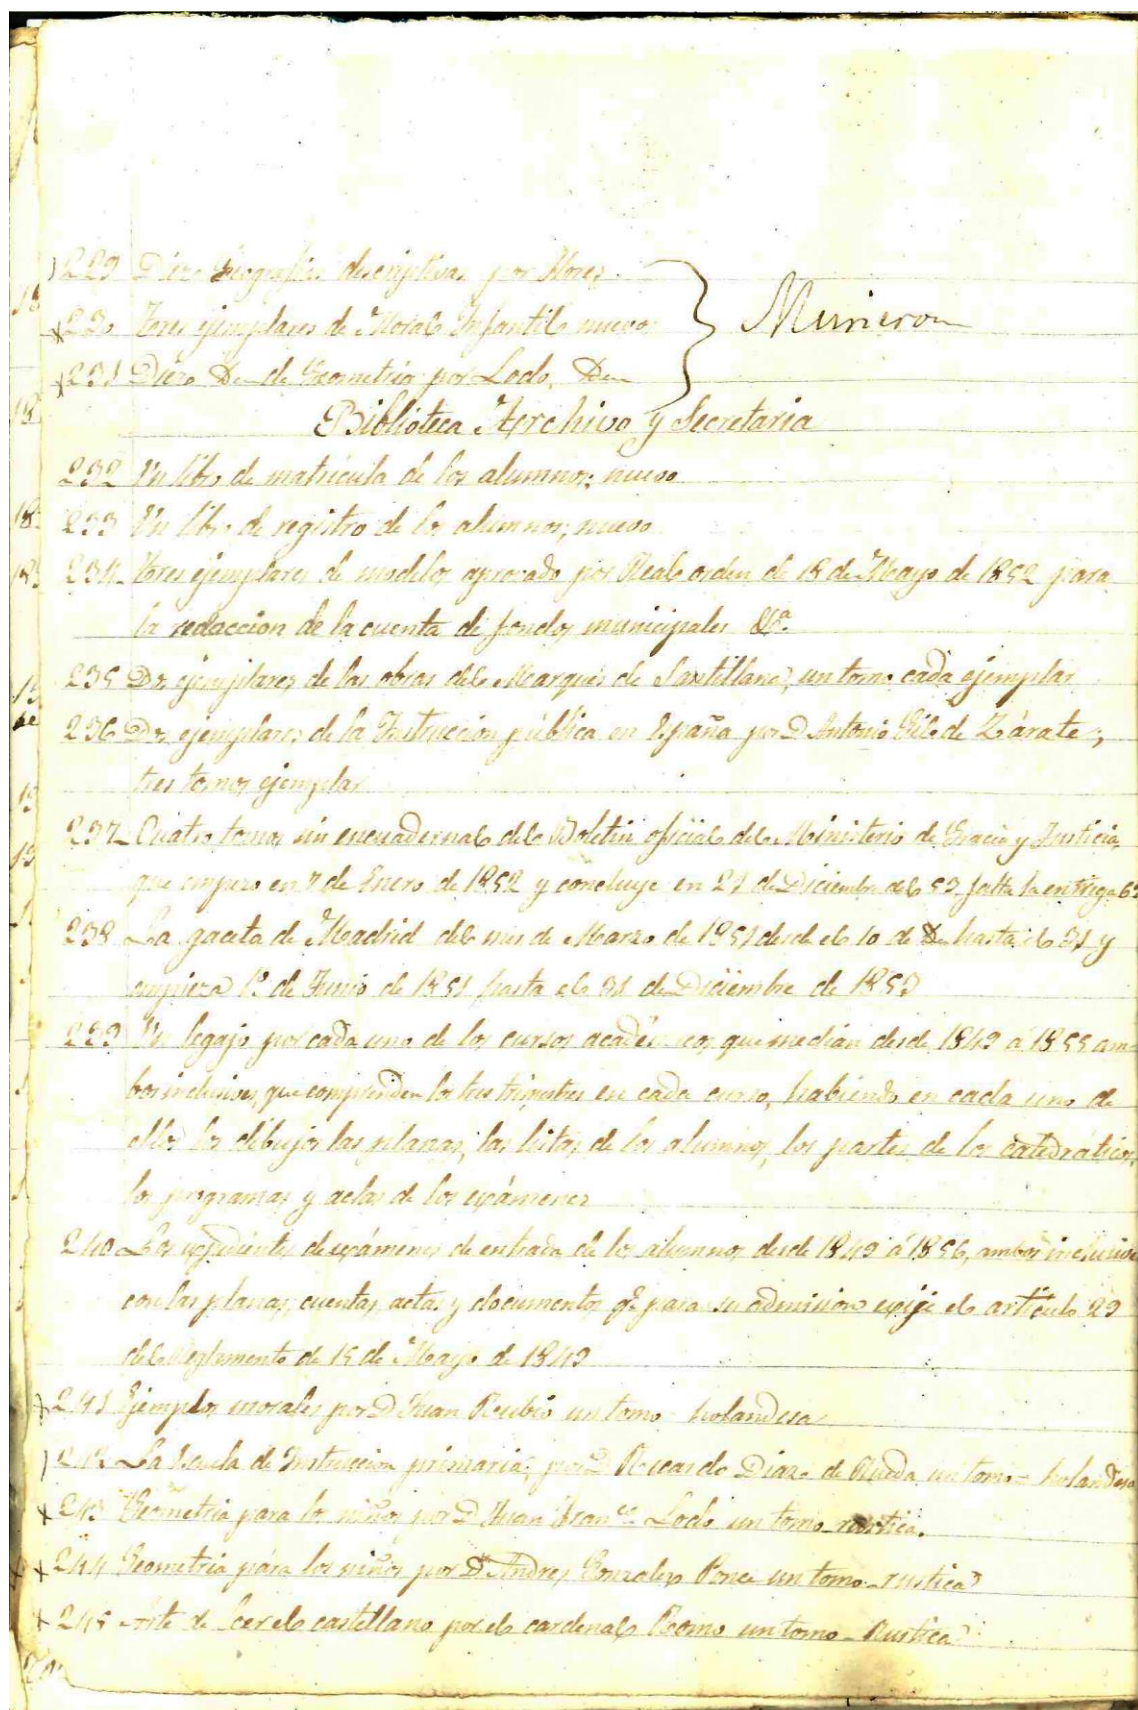 229 Diez Geografías descriptivas por Florez
230 Tres ejemplares de Moral Infantil nuevos } Murieron
231 Diez Dem de Geometria por Lodo, Dem
Biblioteca Archivo y Secretaria
232 Un libro de matricula de los alumnos; nuevo
233 Un libro de registro de los alumnos; nuevo
234 Tres ejemplares de modelos aprovado por Real orden de 18 de Mayo de 1852 para
la redaccion de la cuenta de fondos municipales &ª
235 Dos ejemplares de las obras del Marqués de Santillana, un tomo cada ejemplar
236 Dos ejemplares de la Instruccion pública en España por D. Antonio Gil de Zárate;
tres tomos ejemplar
237 Cuatro tomos sin encuadernal del Boletin oficial del Ministerio de Gracia y Justicia,
que empezo en 7 de Enero de 1852 y concluye en 21 de Diciembre del 53, falta la entrega
238 La gaceta de Madrid del mes de Marzo de 1851 desde el 10 de Dem hasta el 31 y
empieza 1º de Junio de 1851 hasta el 31 de Diciembre de 1853
239 Un legajo por cada uno de los cursos académicos que medían desde 1849 á 1855 am-
bos inclusives, que comprenden los tres trimestres en cada curso, habiendo en cada uno de
ellos los dibujos las planas, las listas de los alumnos, los partes de los catedráticos,
los programas y actas de los exámenes
240 Los expedientes de exámenes de entrada de los alumnos desde 1849 á 1856, ambos inclusive
con las planas, cuentas, actas y documentos qe para su admision exije el artículo 29
del Reglamento de 15 de Mayo de 1849
241 Ejemplos morales por D Juan Rubio un tomo holandesa
242 La Escuela de Instruccion primaria; por D Ricardo Diaz de Rueda un tomo - holandesa
243 Geometria para los niños por D Juan Franco Lodo un tomo rustica.
244 Geometria pára los niños por D Andres Gonzalez Ponce un tomo - rustica
245 Arte de leer el castellano por el cardenal Romo un tomo - Rustica